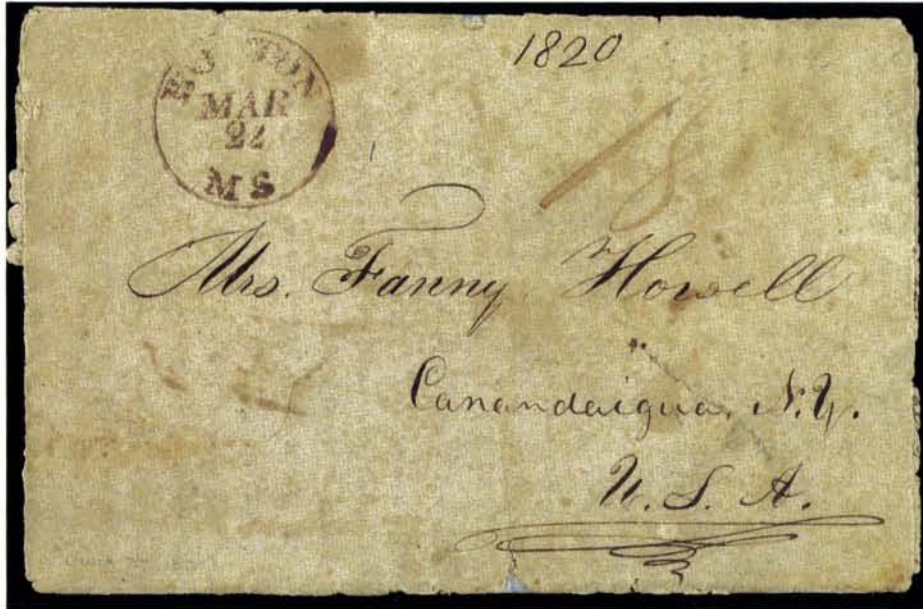 1820
BOSTON
MAR
24
MS
18
Mrs. Fanny Howell
Canandaigua, N.Y.
U. S. A.